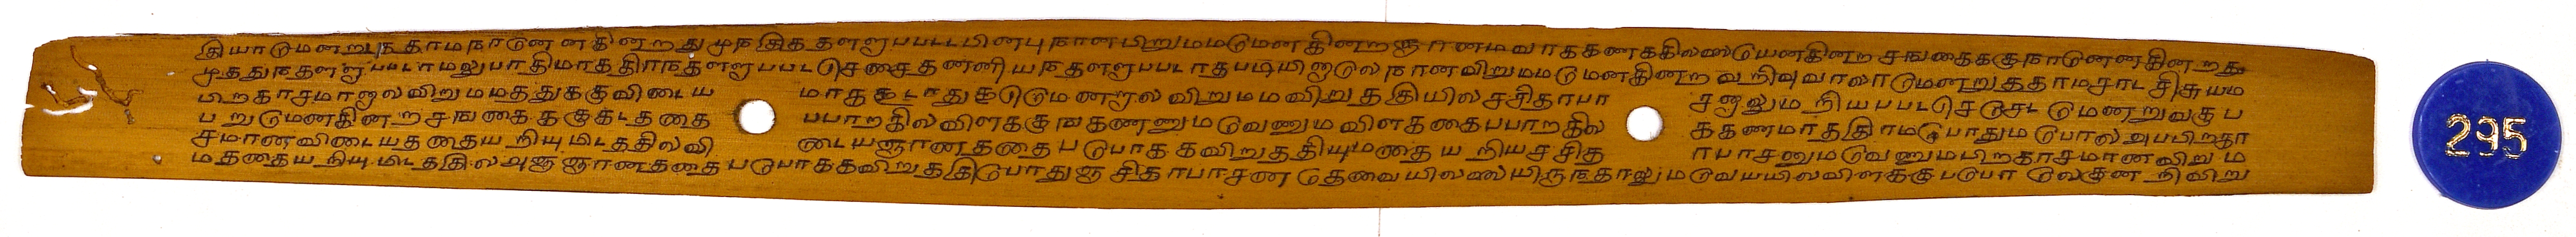 இயாடுமனறுநதாமநாடுனனகினறதுமுநதிததளளபபடடபினபுநானபிறுமமடுமனகினறஞானமவாதகணககிலலைடுயனகினறசஙகைககுநாடுனனகினறது
முதததுநதளளபபடாமலுபாதிமாததிரநதளளபபடடுசசைதனனியநதளளபபடாதபடியினுடுலநானவிறுமமடுமனகினறவறிவுவாலாடுமனறுததாமசாடசிசுயம
பிறகாசமானுலவிறுமமததுககுவிடைய மாதகூடாதுகடுடுமணறுலவிறுமமவிறுததியிலசசிதாபா சனலுமறியபபடடுசடுசடடுமணறுவகுப
பறுடுமனகினறசஙகைககுககிடததை பபாறகிலவிளககுஙகணணுமடுவணுமவிளககைபபாறகில ககணமாததிரமடுபாதுமடுபாலஅபபிறகா
சமானவிடையததையறியுமிடததிலவி டையஞானததைபடுபாககவிறுததியுமதையறியசசித ாபாசனுமடுவணுமபிறகாசமானவிறும
மததையறியுமிடததிலஅஞஞானததைபடுபாககவிறுததிடுபாதுஞசிதாபாசணடுதவையிலலையிருநதாலுமடுவயயிலவிளககுபடுபாடுலகுனறிவிறு
295